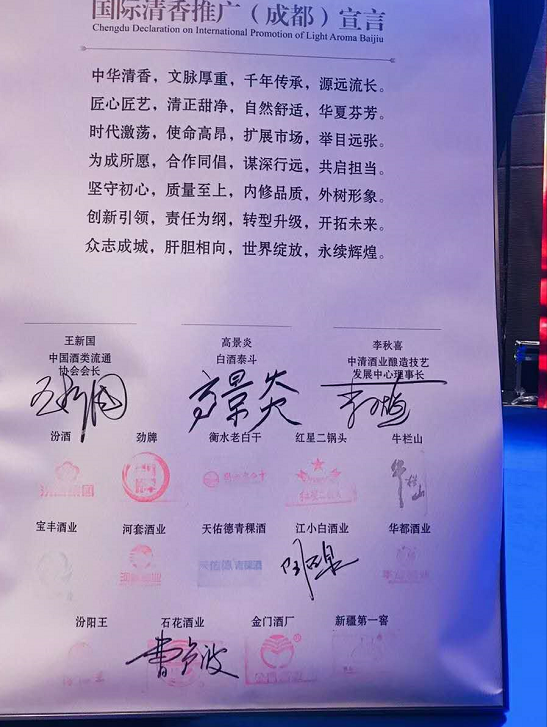 国际清香推广（成都）宣言
Chengdu Declaration on International Promotion of Light Aroma Baijiu
中华清香，文脉厚重，千年传承，源远流长。
匠心匠艺，清正甜净，自然舒适，华夏芬芳。
时代激荡，使命高昂，扩展市场，举目远张。
为成所愿，合作同倡，谋深行远，共启担当。
坚守初心，质量至上，内修品质，外树形象。
创新引领，责任为纲，转型升级，开拓未来。
众志成城，肝胆相向，世界绽放，永续辉煌。
王新国 高景炎 李秋喜
中国酒类流通 白酒泰斗 中清酒业酿造技艺
协会会长 发展中心理事长
王新国 高景炎 李秋喜
汾酒 劲牌 衡水老白干 红星二锅头 牛栏山
牛栏山
宝丰酒业 河套酒业 天佑德青稞酒 江小白酒业 华都酒业
天佑德 青稞酒
汾阳王 石花酒业 金门酒厂 新疆第一窖
曹卓波